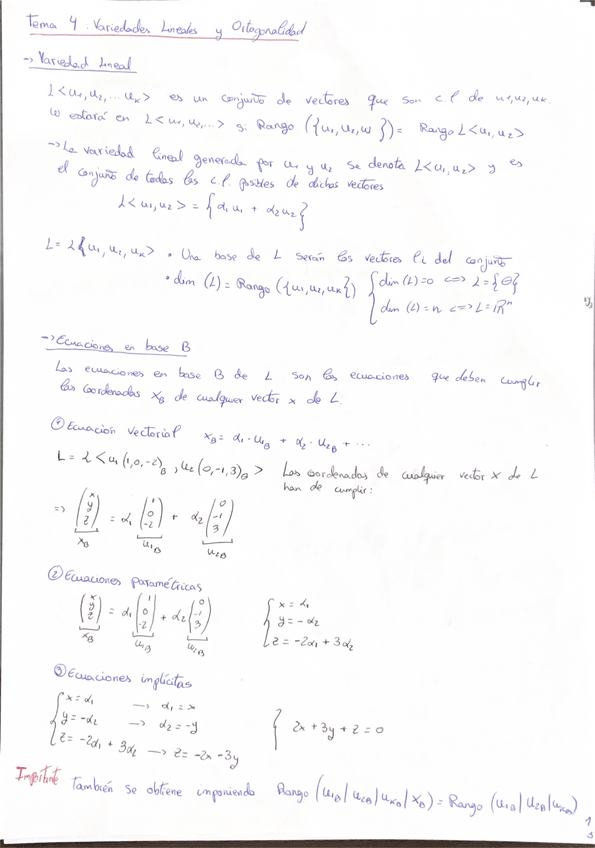 Tema 4. Variedades Lineales y Ortogonalidad
→ Variedad Lineal
L<u1, u2, ... uk> es un conjunto de vectores que son c.l de u1, u2, uk.
w estará en L<u1, u2, ...> si Rango ({u1, u2, w}) = Rango L<u1, u2>
→ La variedad lineal generada por u1 y u2 se denota L<u1, u2> y es
el conjunto de todas las c.l. posibles de dichos vectores
L<u1, u2> = {α1 u1 + α2 u2}
L = L{u1, u2, uk> • Una base de L serán los vectores li del conjunto
• dim (L) = Rango ({u1, u2, uk}) { dim (L) = 0 <=> L = {θ}
dim (L) = n <=> L = ℝⁿ
→ Ecuaciones en base B
Las ecuaciones en base B de L son las ecuaciones que deben cumplir
las coordenadas xB de cualquier vector x de L.
① Ecuación vectorial xB = α1 · u1B + α2 · u2B + ...
L = L<u1 (1, 0, -2)B, u2 (0, -1, 3)B> Las coordenadas de cualquier vector x de L
han de cumplir:
=> (x y z) = α1 (1 0 -2) + α2 (0 -1 3)
xB u1B u2B
② Ecuaciones paramétricas
(x y z) = α1 (1 0 -2) + α2 (0 -1 3) { x = α1
y = -α2
z = -2α1 + 3α2
xB u1B u2B
③ Ecuaciones implícitas
{ x = α1 → α1 = x
y = -α2 → α2 = -y { 2x + 3y + z = 0
z = -2α1 + 3α2 → z = -2x - 3y
Importante También se obtiene imponiendo Rango (u1B | u2B | ukB | xB) = Rango (u1B | u2B | ukB)